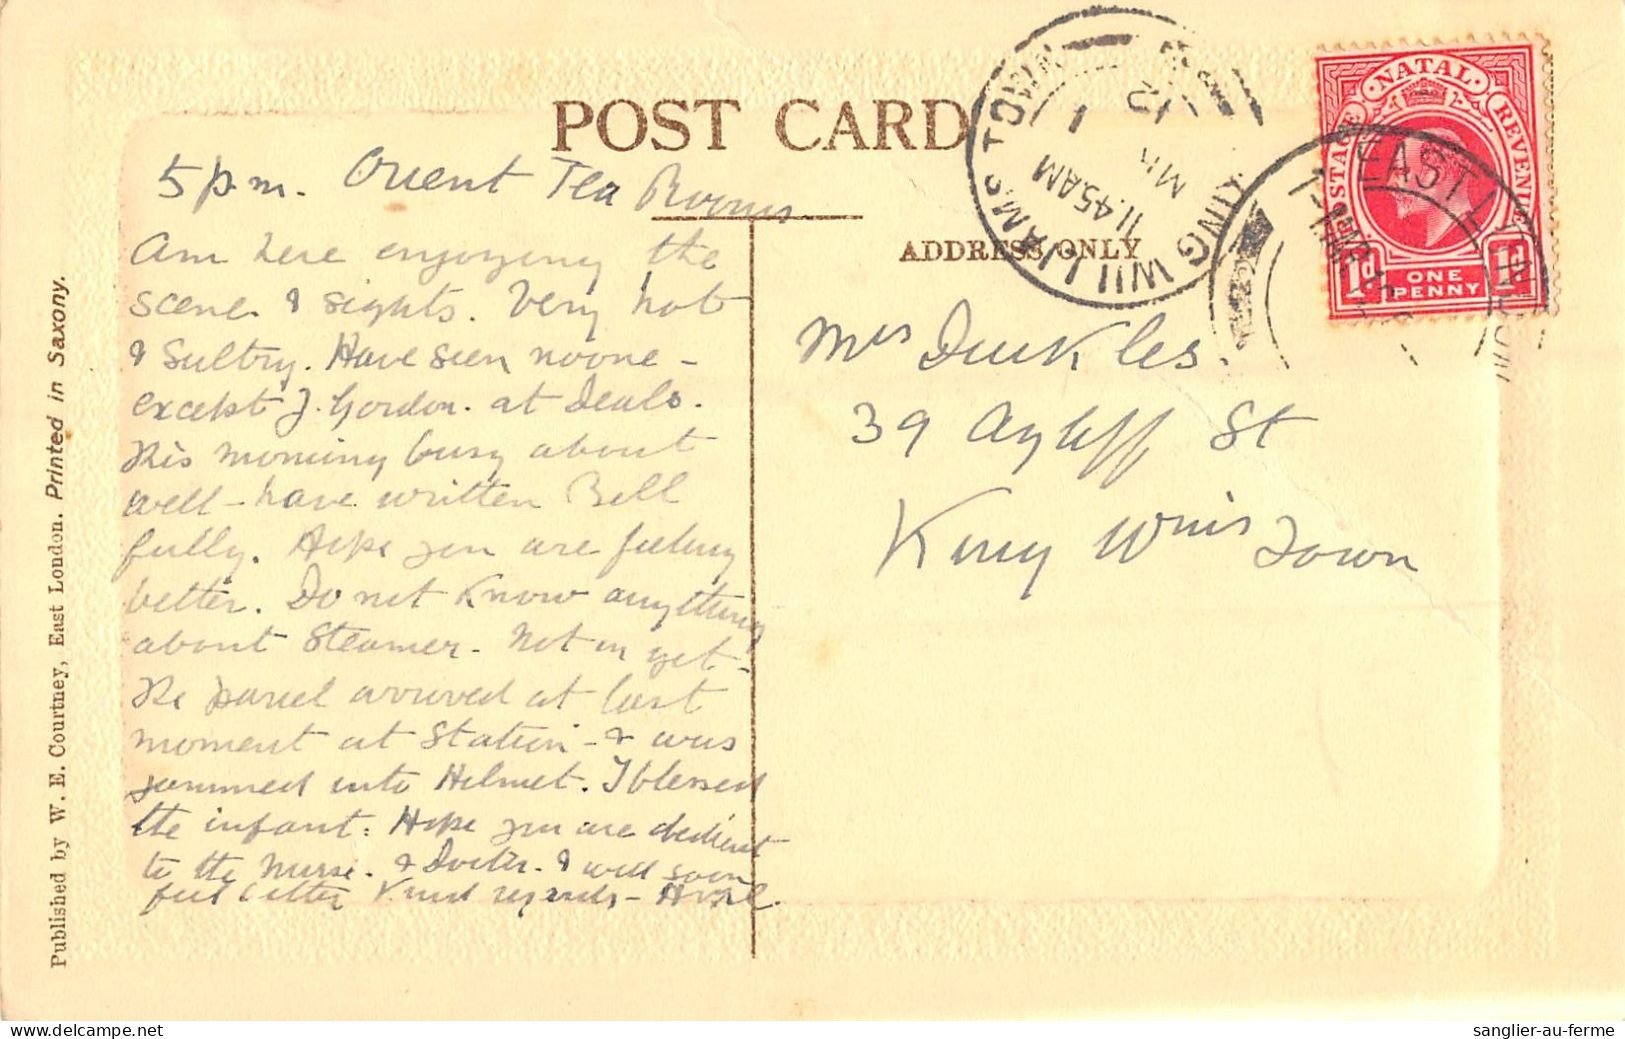 POST CARD
ADDRESS ONLY
5 p.m. Orient Tea Rooms
Am here enjoying the
scene & sights. Very hot
& Sultry. Have seen no one -
except J. Gordon. at Deals.
This morning busy about
well - have written Bell
fully. Hope you are feeling
better. Do not Know anything
about Steamer - Not in yet -
The parcel arrived at last
moment at Station - & was
jammed into Helmet. I blessed
the infant. Hope you are obedient
to the Nurse. & Doctor. & will soon
feel better Kind regards -
Mrs
39 Ayliff St
King Wms Town
KING WILLIAM'S TOWN
11.45 AM
MR
1
12
EAST LONDON
NATAL
POSTAGE
REVENUE
1d ONE PENNY 1d
Published by W. E. Courtney, East London. Printed in Saxony.
sanglier-au-ferme